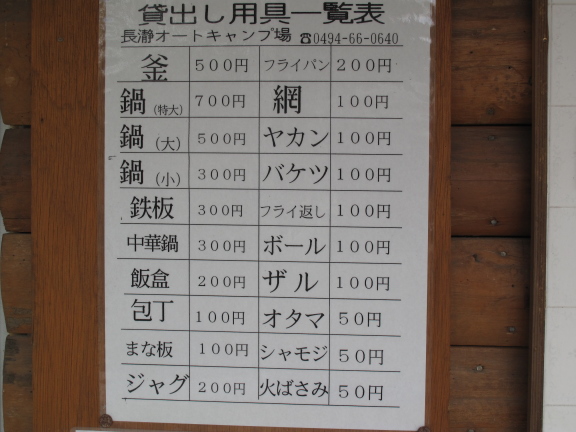 貸出し用具一覧表
長瀞オートキャンプ場 ☎0494-66-0640
釜 500円 フライパン 200円
鍋(特大) 700円 網 100円
鍋(大) 500円 ヤカン 100円
鍋(小) 300円 バケツ 100円
鉄板 300円 フライ返し 100円
中華鍋 300円 ボール 100円
飯盒 200円 ザル 100円
包丁 100円 オタマ 50円
まな板 100円 シャモジ 50円
ジャグ 200円 火ばさみ 50円